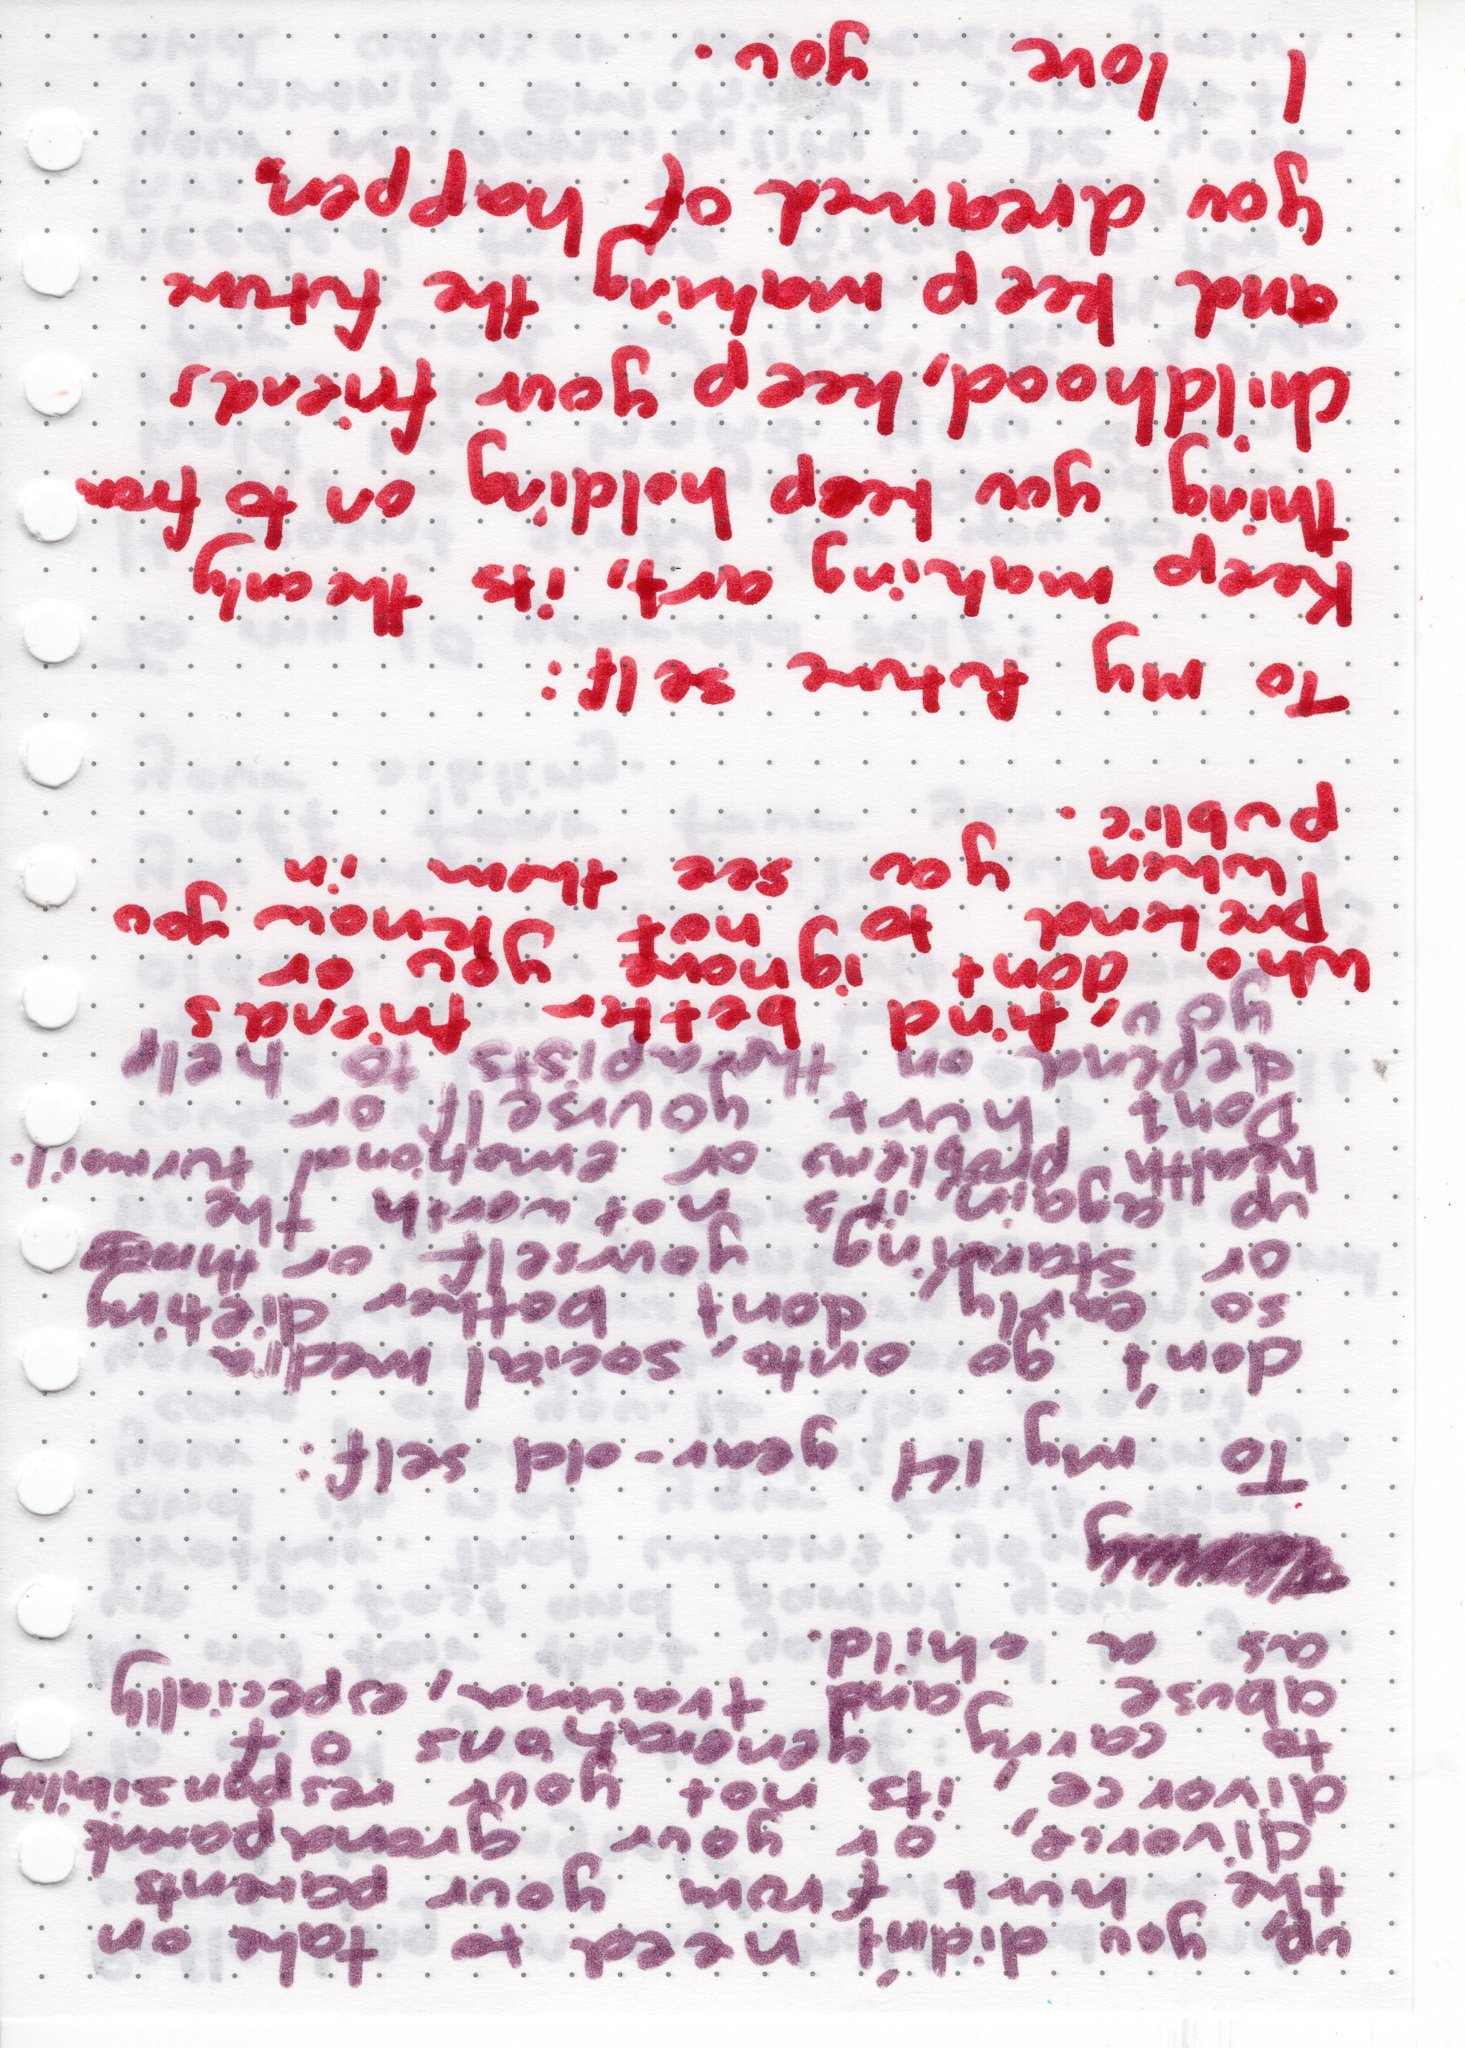 up, you didn't need to take on
the hurt from your parents
divorce, or your grandparents
divorce, its not your responsibility
to carry generations of
abuse and trauma, especially
as a child.
To my 14 year-old self:
don't go onto social media
so early, dont bother dieting
or starving yourself or things
up again, its not worth the
health problems or emotional turmoil.
Dont hurt yourself or
depend on therapists to help
you, find better friends
who dont ignore you or
pretend to not know you
when you see them in
public.
To my future self:
Keep making art, its the only
thing you keep holding on to from
childhood, keep your friends
and keep making the future
you dreamed of happen.
I love you.